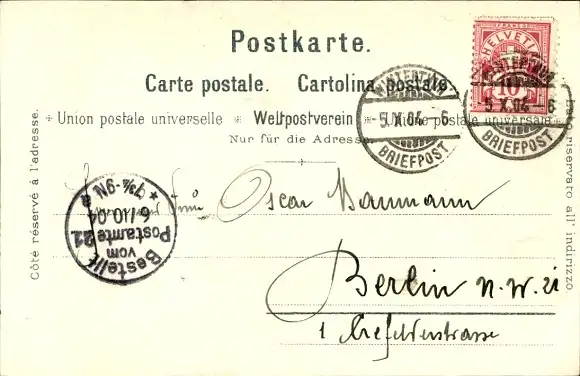 Postkarte.
Carte postale. Cartolina postale.
Union postale universelle Weltpostverein Unione postale universale
Nur für die Adresse
Côté réservé à l'adresse.
Lato riservato all' indirizzo.
FRANCO
HELVETIA
10
WINTERTHUR
5.X.04.-6
BRIEFPOST
WINTERTHUR
5.X.04.-6
BRIEFPOST
Bestellt
vom
Postamte 21
6/10.04
7¾-9N.
Oscar Baumann
Berlin N.W. 21
1 Crefelderstrasse